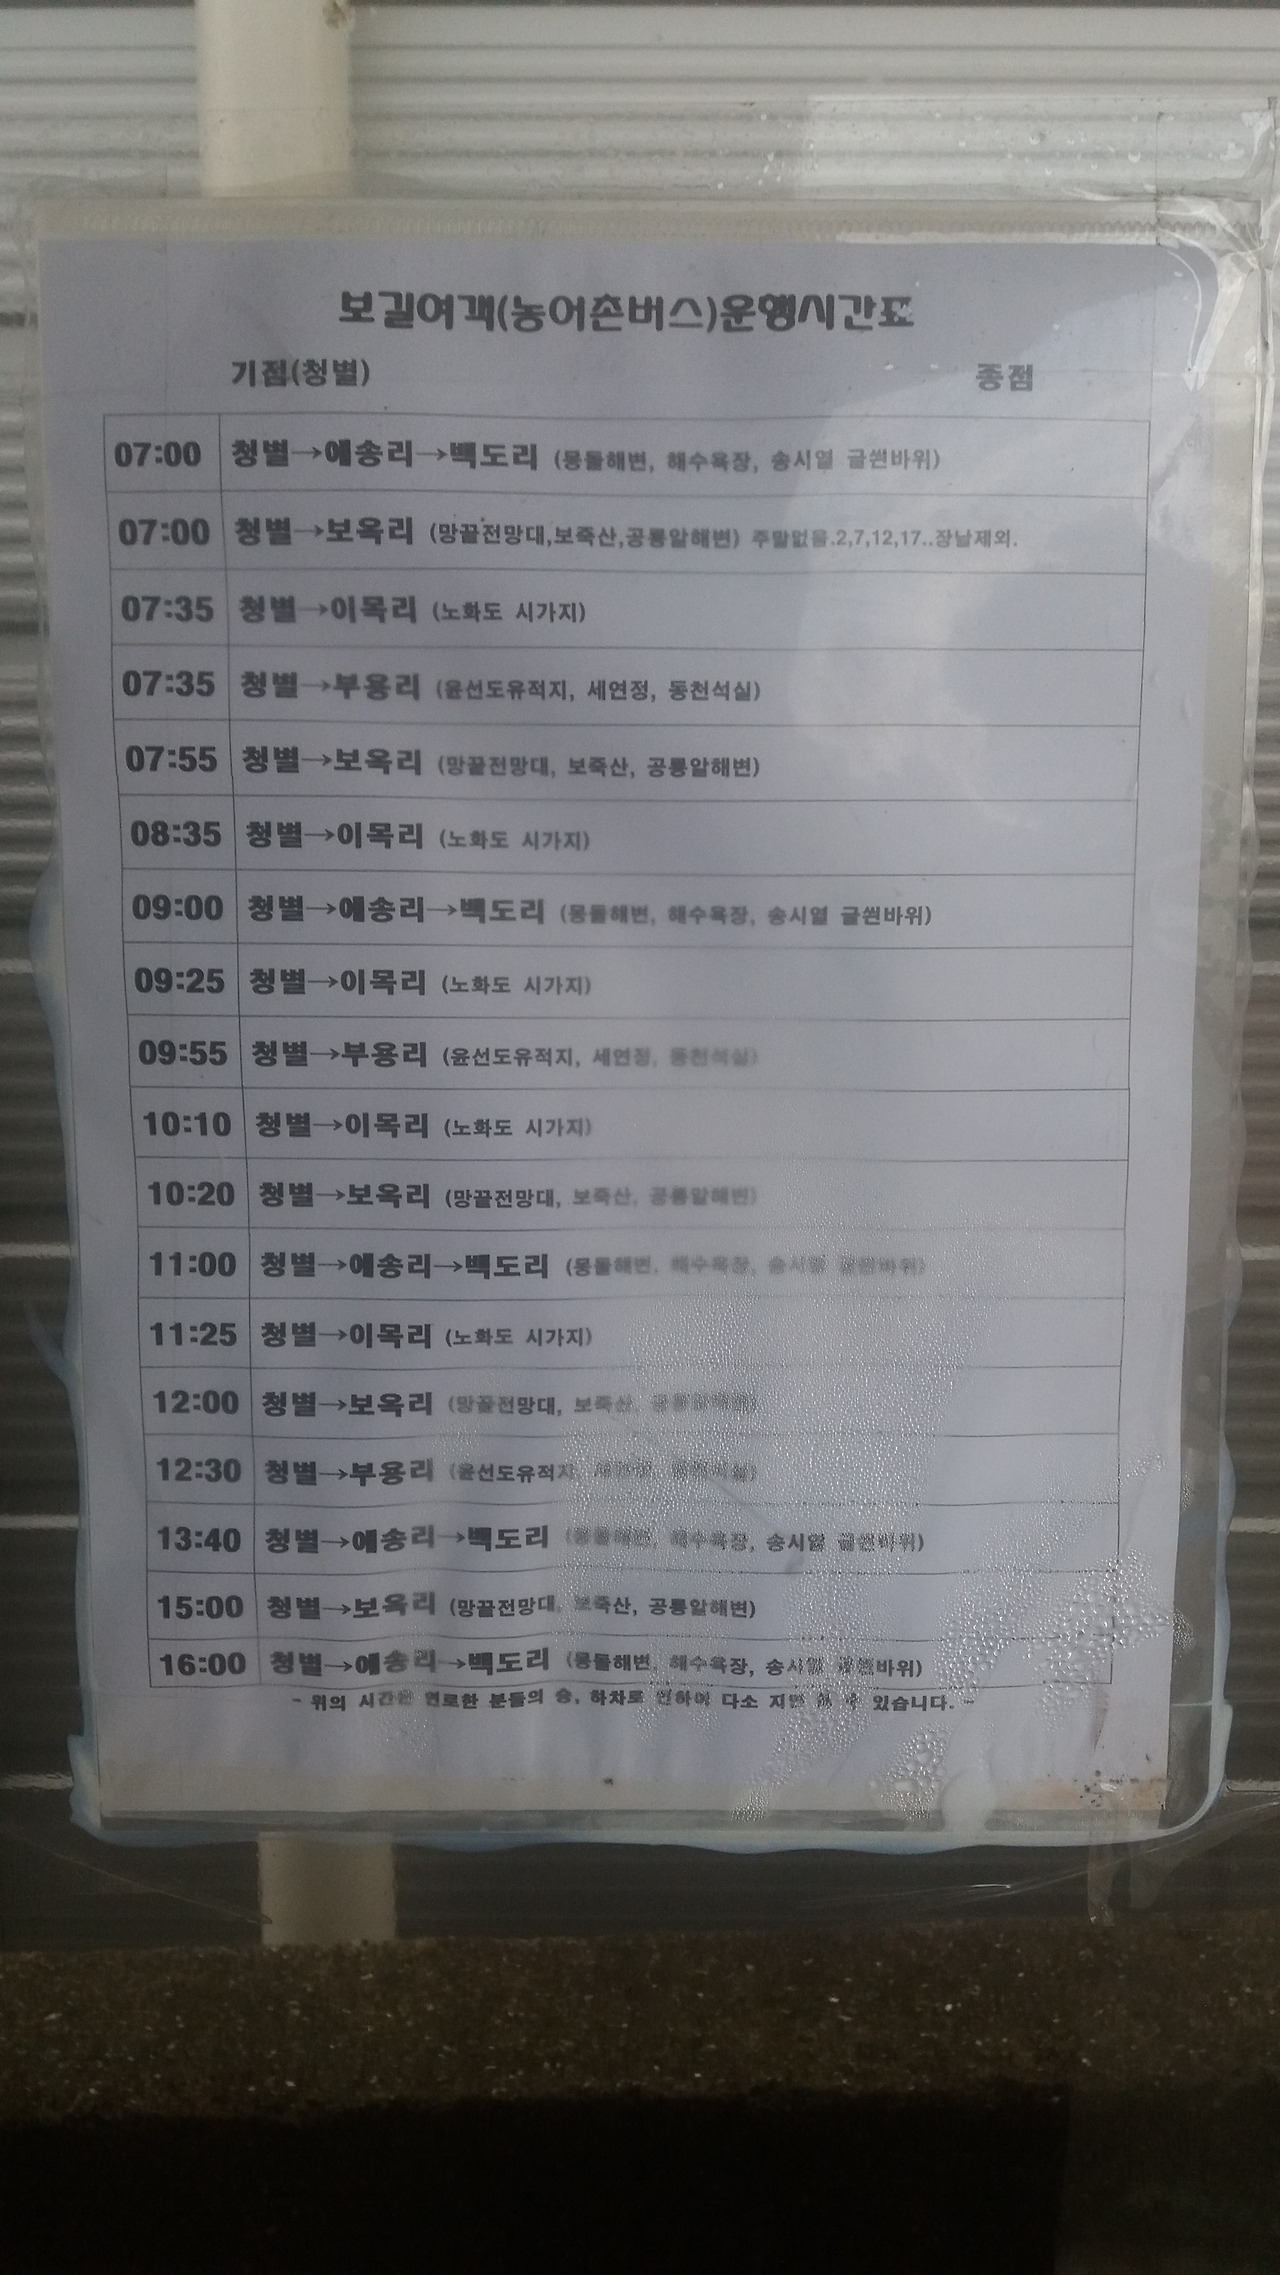 보길여객(농어촌버스)운행시간표
기점(청별) 종점
07:00 청별→예송리→백도리 (몽돌해변, 해수욕장, 송시열 글씐바위)
07:00 청별→보옥리 (망끝전망대,보죽산,공룡알해변) 주말없음.2,7,12,17..장날제외.
07:35 청별→이목리 (노화도 시가지)
07:35 청별→부용리 (윤선도유적지, 세연정, 동천석실)
07:55 청별→보옥리 (망끝전망대, 보죽산, 공룡알해변)
08:35 청별→이목리 (노화도 시가지)
09:00 청별→예송리→백도리 (몽돌해변, 해수욕장, 송시열 글씐바위)
09:25 청별→이목리 (노화도 시가지)
09:55 청별→부용리 (윤선도유적지, 세연정, 동천석실)
10:10 청별→이목리 (노화도 시가지)
10:20 청별→보옥리 (망끝전망대, 보죽산, 공룡알해변)
11:00 청별→예송리→백도리 (몽돌해변, 해수욕장, 송시열 글씐바위)
11:25 청별→이목리 (노화도 시가지)
12:00 청별→보옥리 (망끝전망대, 보죽산, 공룡알해변)
12:30 청별→부용리 (윤선도유적지, 세연정, 동천석실)
13:40 청별→예송리→백도리 (몽돌해변, 해수욕장, 송시열 글씐바위)
15:00 청별→보옥리 (망끝전망대, 보죽산, 공룡알해변)
16:00 청별→예송리→백도리 (몽돌해변, 해수욕장, 송시열 글씐바위)
- 위의 시간은 연로한 분들의 승, 하차로 인하여 다소 지연 될 수 있습니다. -